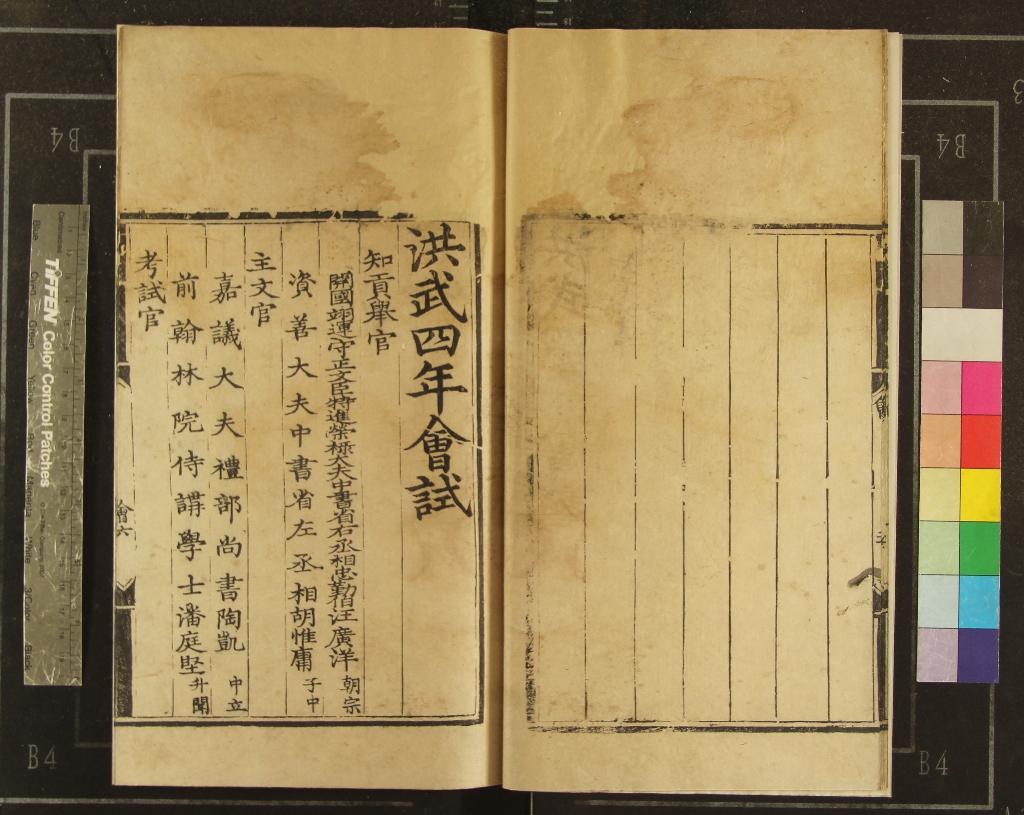 洪武四年會試
知貢舉官
開國翊運守正文臣特進榮祿大夫中書省右丞相忠勤伯汪廣洋 朝宗
資善大夫中書省左丞相胡惟庸 子中
主文官
嘉議大夫禮部尚書陶凱 中立
前翰林院侍講學士潘庭堅 升聞
考試官
會六
TIFFEN Color Control Patches
B4
B4
B4
B4